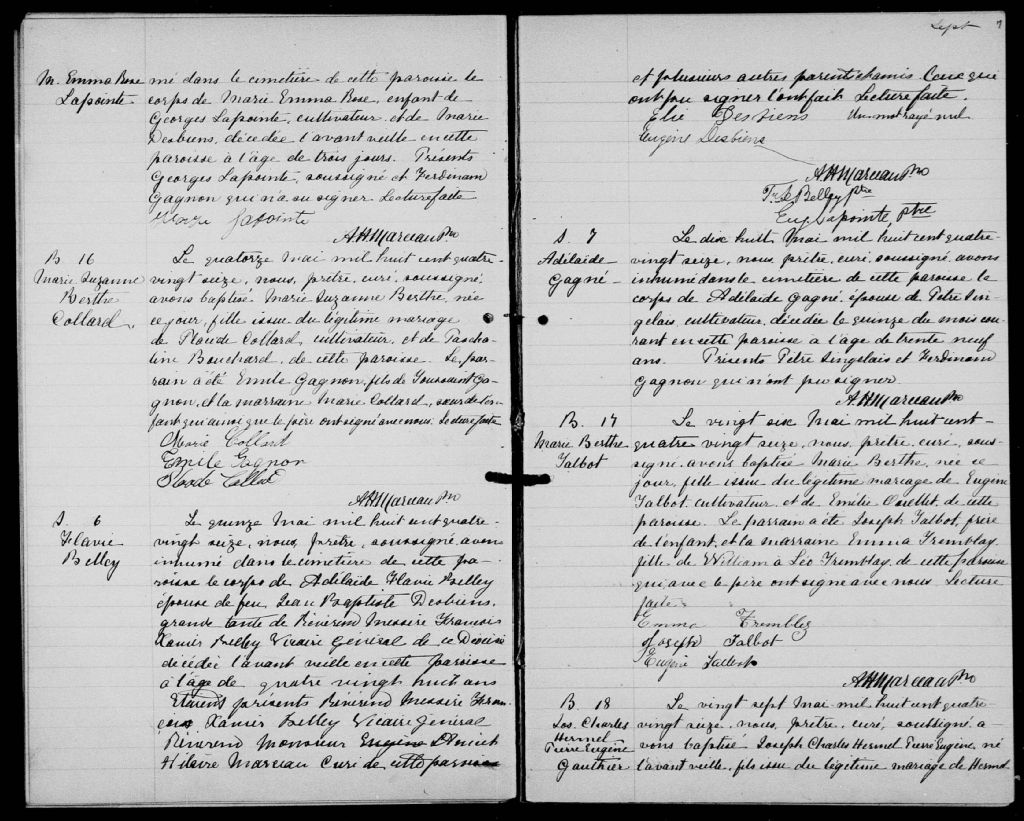 M. Emma Rose
Lapointe
mé dans le cimetière de cette paroisse le
corps de Marie Emma Rose, enfant de
Georges Lapointe, cultivateur et de Marie
Desbiens, décédée l'avant veille en cette
paroisse à l'âge de trois jours. Présents
Georges Lapointe, soussigné et Ferdinand
Gagnon qui n'a su signer. Lecture faite
Lapointe
A.H. Marceau Ptre
B. 16
Marie Suzanne
Berthe
Collard
Le quatorze Mai mil huit cent quatre-
vingt seize, nous, prêtre, curé, soussigné,
avons baptisé Marie Suzanne Berthe, née
ce jour, fille issue du légitime mariage
de Placide Collard, cultivateur, et de Pascha-
line Bouchard, de cette paroisse. Le par-
rain a été Emile Gagnon, fils de Toussaint Ga-
gnon, et la marraine Marie Collard, sœur de l'en-
fant qui ainsi que le père ont signé avec nous. Lecture faite
Marie Collard
Emile Gagnon
A.H. Marceau Ptre
S. 6
Flavie
Belley
Le quinze Mai mil huit cent quatre-
vingt seize, nous, prêtre, soussigné, avons
inhumé dans le cimetière de cette pa-
roisse le corps de Adélaïde Flavie Belley
épouse de feu Jean Baptiste Desbiens,
grande tante de Révérend Messire François
Xavier Belley Vicaire Général de ce Diocèse
décédée l'avant veille en cette paroisse
à l'âge de quatre vingt huit ans
Etaient présents Révérend Messire Fran-
çois Xavier Belley Vicaire Général
Révérend Monsieur Eugène
Hilaire Marceau Curé de cette paroisse
Sept 7
et plusieurs autres parents et amis. Ceux qui
ont pu signer l'ont fait. Lecture faite.
Elie Desbiens Un mot rayé nul
Eugène Desbiens
A.H. Marceau Ptre
Fr. X. Belley ptre
Eug. Lapointe ptre
S. 7
Adélaïde
Gagné
Le dix huit Mai mil huit cent quatre-
vingt seize, nous, prêtre, curé, soussigné, avons
inhumé dans le cimetière de cette paroisse le
corps de Adélaïde Gagné, épouse de Pitre Sin-
gelais, cultivateur, décédée le quinze du mois cou-
rant en cette paroisse à l'âge de trente neuf
ans. Présents Pitre Singelais et Ferdinand
Gagnon qui n'ont pu signer.
A.H. Marceau Ptre
B. 17
Marie Berthe
Talbot
Le vingt six Mai mil huit cent-
quatre vingt seize, nous, prêtre, curé, sous-
signé, avons baptisé Marie Berthe, née ce
jour, fille issue du légitime mariage de Eugène
Talbot, cultivateur, et de Emélie Ouellet, de cette
paroisse. Le parrain a été Joseph Talbot, frère
de l'enfant, et la marraine Emma Tremblay,
fille de William à Léo Tremblay, de cette paroisse
qui avec le père ont signé avec nous. Lecture
faite.
Emma Tremblay
Joseph Talbot
Eugène Talbot
A.H. Marceau Ptre
B. 18
Jos. Charles
Hermel
Pierre Eugène
Gauthier
Le vingt sept Mai mil huit cent quatre
vingt seize, nous, prêtre, curé, soussigné, a-
vons baptisé Joseph Charles Hermel Pierre Eugène, né
l'avant veille, fils issu du légitime mariage de Hermel